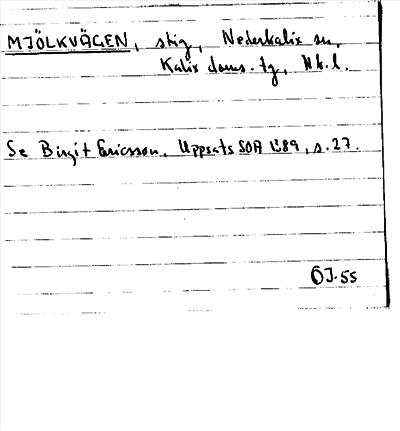 MJÖLKVÄGEN, stig, Nederkalix sn,
Kalix doms. tg, Nb. l.
Se Birgit Ericsson, Uppsats SOA 1:89, s. 27.
ÖJ. 55